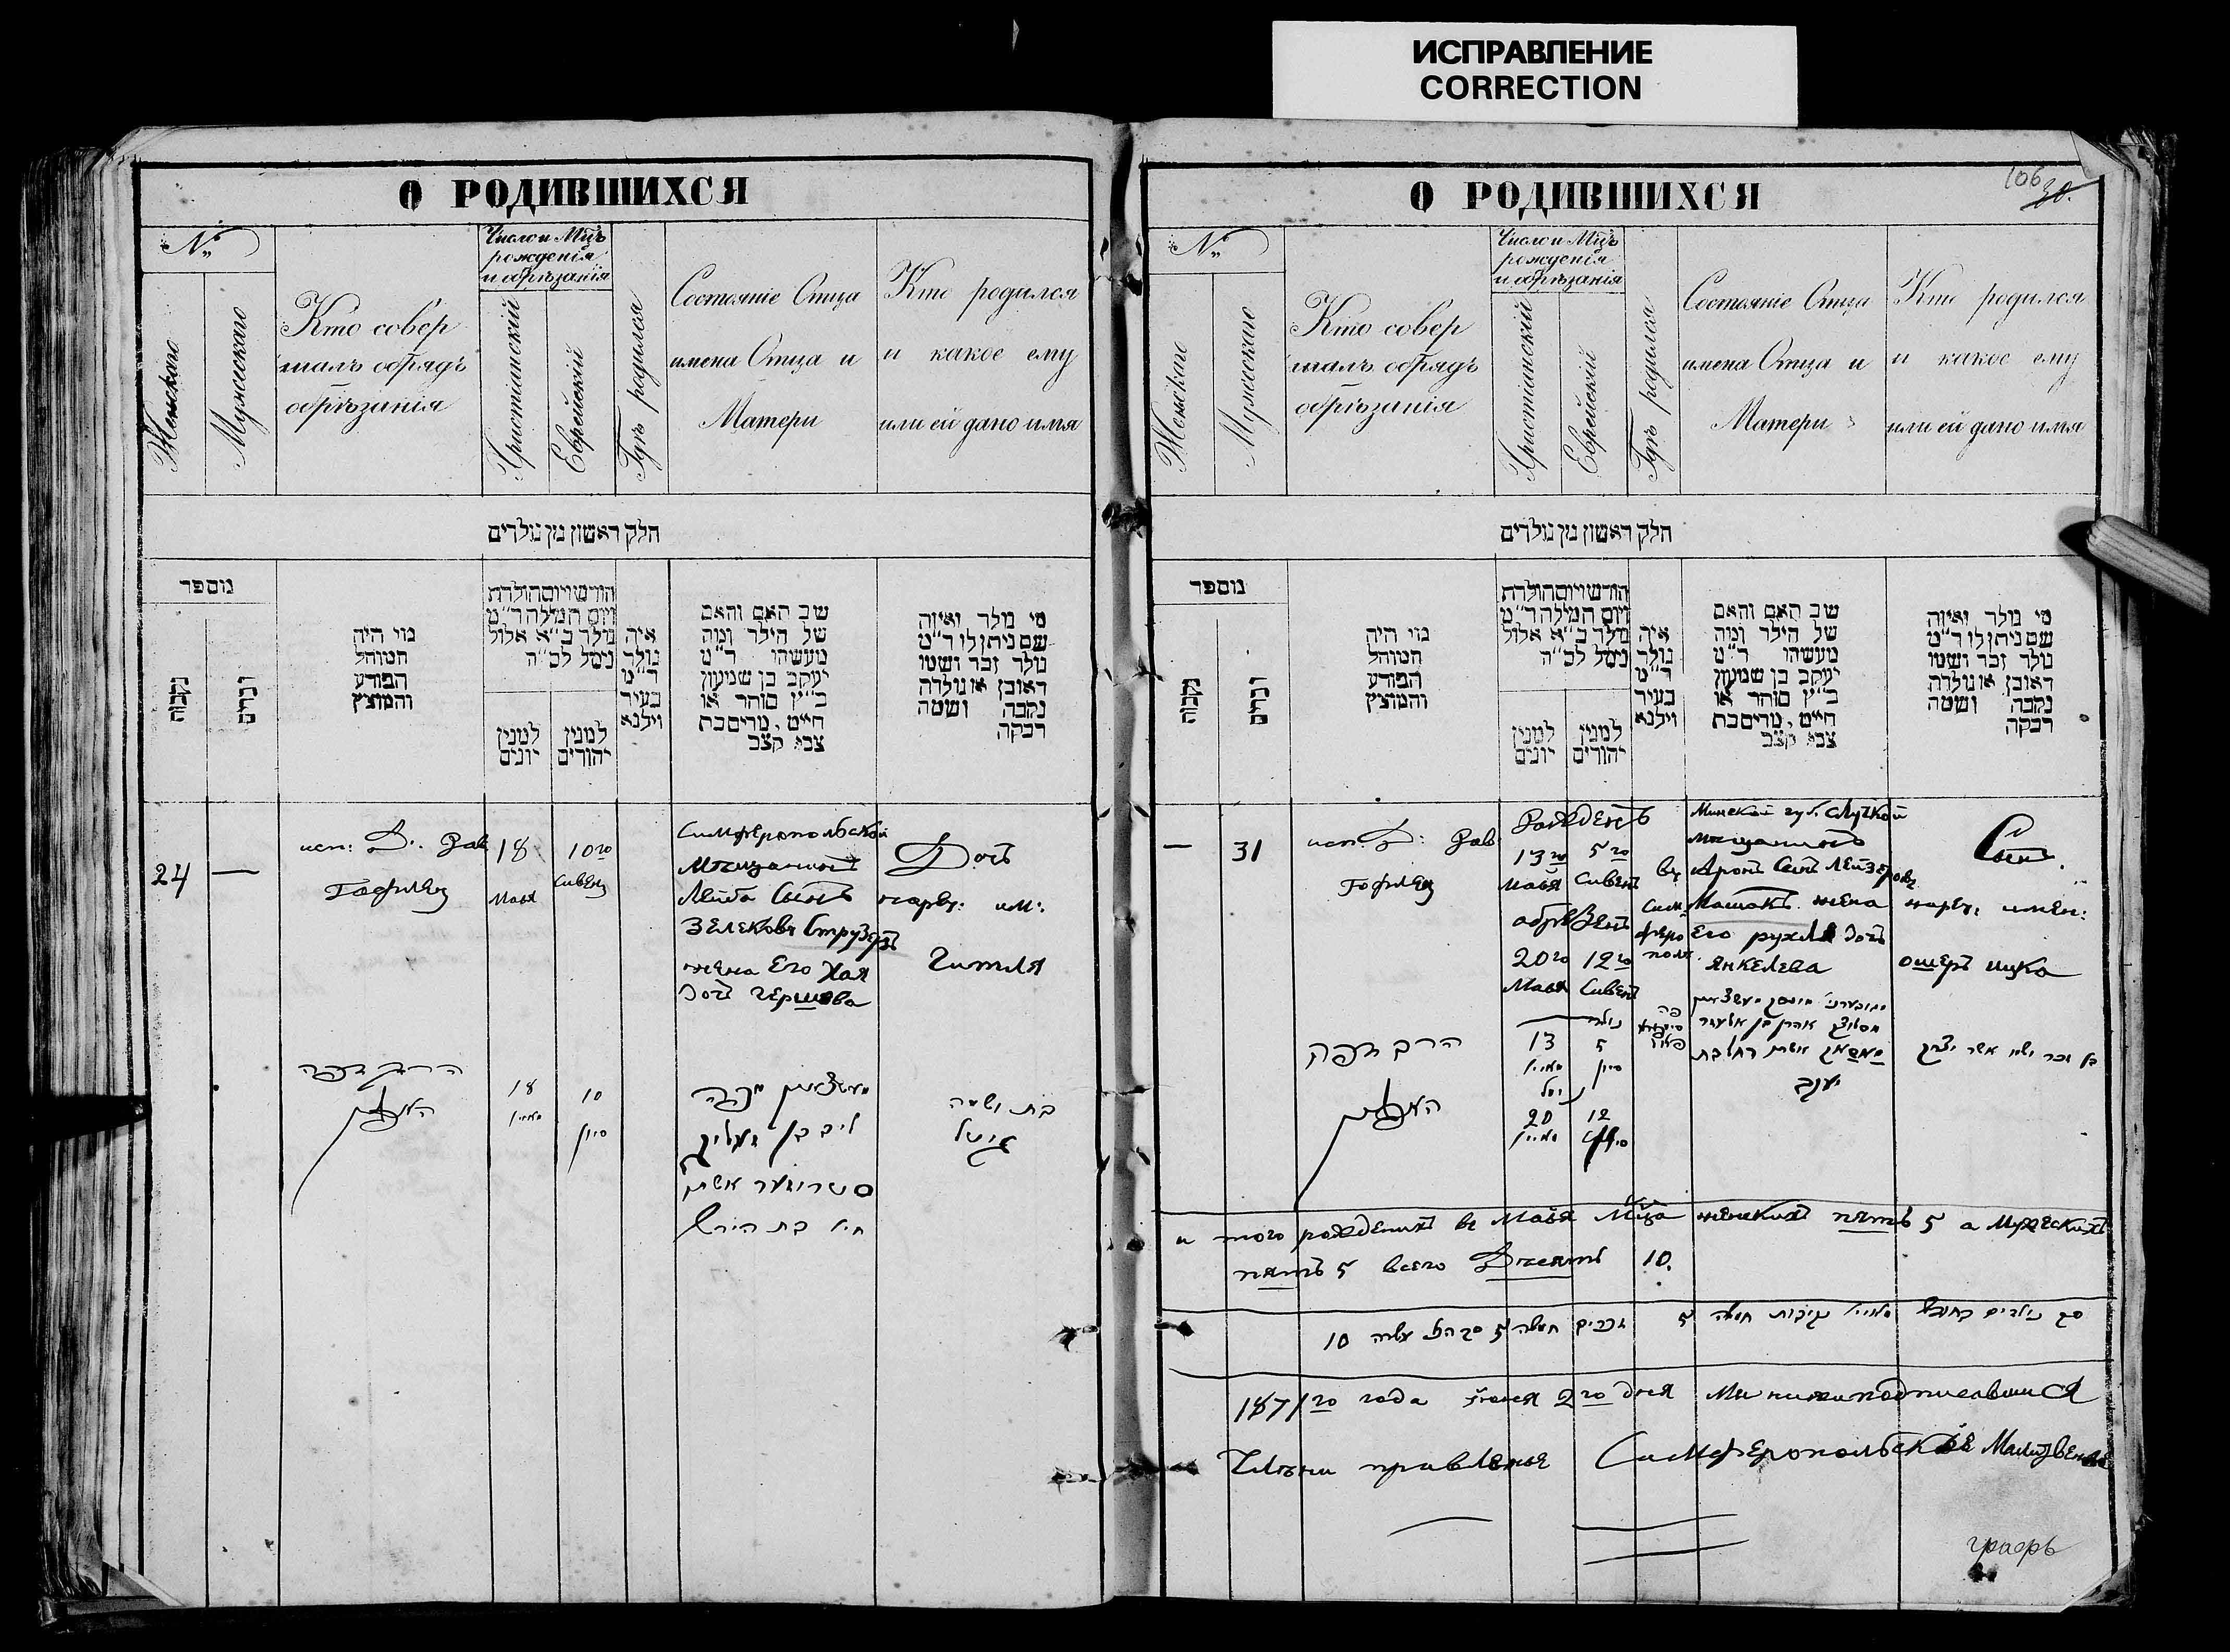 ИСПРАВЛЕНИЕ
CORRECTION
О РОДИВШИХСЯ
№
Женскаго
Мужескаго
Кто совер
шалъ обрядъ
обрѣзанія
Число и Мцъ
рожденія
и обрѣзанія
Христіанскій
Еврейскій
Гдѣ родился
Состояніе Отца
имена Отца и
Матери
Кто родился
и какое ему
или ей дано имя
חלק ראשון מן נולדים
מספר
נקבות
זכרים
מי היה
המוהל
הפורע
והמוצץ
חודש ויום הולדת
ויום המילה ר״מ
נולד כ״א אלול
נימל לכ״ה
למנין
יונים
למנין
יהודים
איה
נולד
ר״מ
בעיר
ווילנא
שב האם והאם
של הילד ומה
מעשהו ר״מ
יעקב בן שמעון
כ״ץ סוחר או
חייט, מרים בת
צבי קצב
מי נולד ואיזה
שם ניתן לו ר״מ
נולד זכר ושמו
ראובן או נולדה
נקבה ושמה
רבקה
24
—
исп: Д. Рав
Гофилец
18
Маья
10го
Сивень
Симферопольской
Мѣщанинъ
Лейба Сынъ
Зелековъ Струзеръ
жена Его Хая
Дочь Гершова
Дочь
нарѣч: им:
Гитля
18
מאיי
10
סיון
ליב בן זעליק
סטרוזער אשתו
חי׳ בת הירש
בת ושמה
גיטל
О РОДИВШИХСЯ
106
30.
№
Женскаго
Мужескаго
Кто совер
шалъ обрядъ
обрѣзанія
Число и Мцъ
рожденія
и обрѣзанія
Христіанскій
Еврейскій
Гдѣ родился
Состояніе Отца
имена Отца и
Матери
Кто родился
и какое ему
или ей дано имя
חלק ראשון מן נולדים
מספר
נקבות
זכרים
מי היה
המוהל
הפורע
והמוצץ
חודש ויום הולדת
ויום המילה ר״מ
נולד כ״א אלול
נימל לכ״ה
למנין
יונים
למנין
יהודים
איה
נולד
ר״מ
בעיר
ווילנא
שב האם והאם
של הילד ומה
מעשהו ר״מ
יעקב בן שמעון
כ״ץ סוחר או
חייט, מרים בת
צבי קצב
מי נולד ואיזה
שם ניתן לו ר״מ
נולד זכר ושמו
ראובן או נולדה
נקבה ושמה
רבקה
—
31
исп. Д: Рав
Гофилец
Рожденъ
13го 5го
Маья Сивень
обрѣзенъ
20го 12го
Маья Сивень
въ
Сим
феро
поль.
Минской губ. Слуцкой
мѣщанинъ
Аронъ Сынъ Лейзеровъ
Машакъ жена
Его рухля Дочь
Янкелева
Сынъ.
нарѣч. имен:
ошеръ ицка
נולד
13
מאיי
5
סיון
נימל
20
מאיי
12
סיון
פה
מסלוצק אהרן בן אלעזר
מאשאק אשתו רחל בת
יעקב
בן זכר ושמו אשר יצחק
и того рожденихъ въ Маья Мѣца женскихъ пять 5 а Мужескихъ
пять 5 всего Десять 10.
סך נולדים בחודש מאיי נקבות חמשה 5 זכרים חמשה 5 סך הכל עשרה 10
1871го года Iюня 2го дня Мы нижеподписавшися
Члѣны правленье Симферопольской
графъ